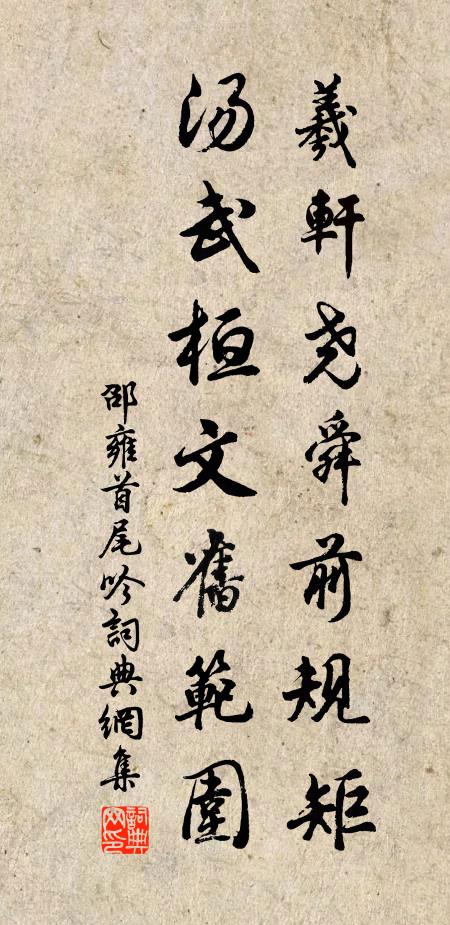 羲軒尧舜前規矩
湯武桓文舊範圍
邵雍首尾吟詞典網集
詞典網印